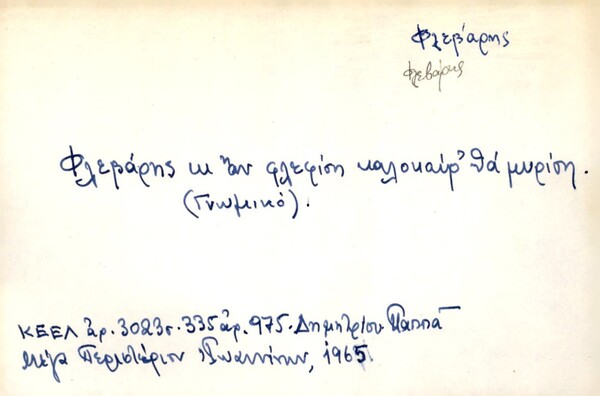 Φλεβάρης
Φλεβάρης
Φλεβάρης κι ἂν φλεβίση καλοκαίρ' θά μυρίση.
(Γνωμικό).
ΚΕΕΛ ἀρ. 3023 σ. 335 ἀρ. 975. Δημητρίου Παππᾶ
Μέγα Περιστέριον Ἰωαννίνων, 1965